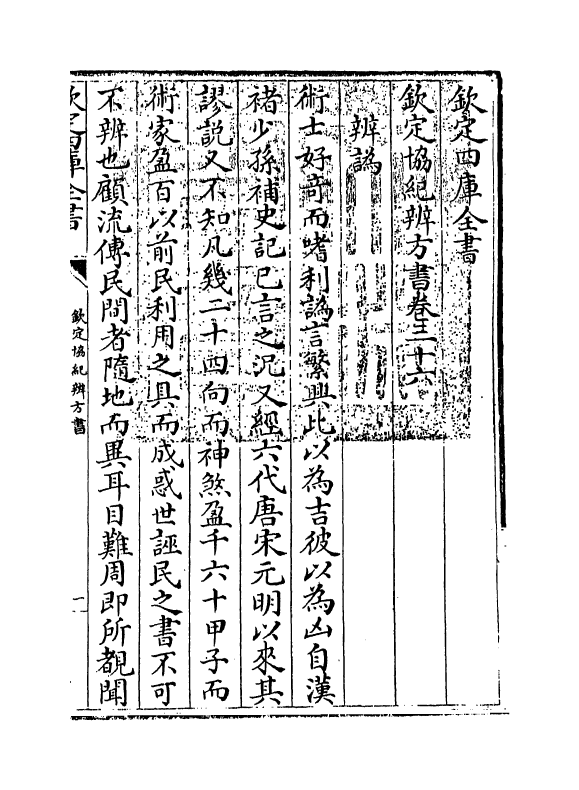 欽定四庫全書
欽定協紀辨方書卷三十六
辨譌
術士好竒而嗜利譌言繁興此以為吉彼以為凶自漢
褚少孫補史記已言之況又經六代唐宋元明以來其
謬說又不知凡幾二十四向而神煞盈千六十甲子而
術家盈百以前民利用之具而成惑世誣民之書不可
不辨也顧流傳民間者隨地而異耳目難周即所覩聞
欽定四庫全書
欽定協紀辨方書
一